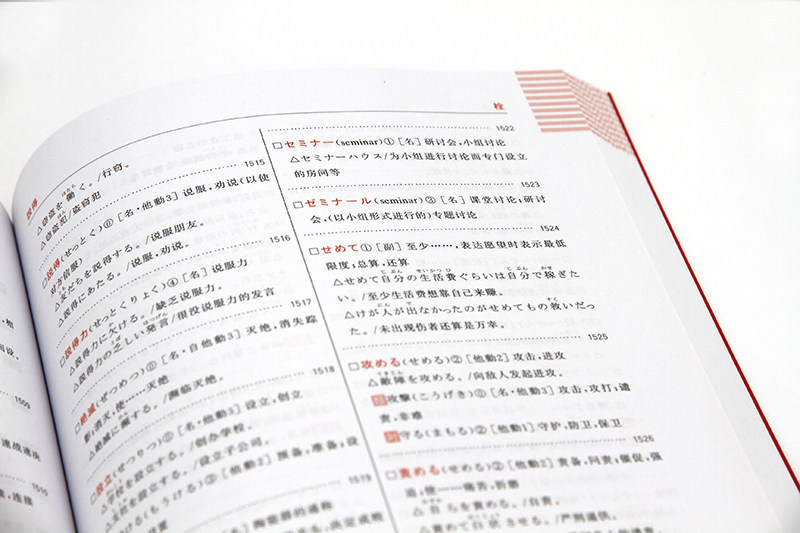 説得
栓
働く。/行窃。
△窃盗犯/盗窃犯
1515
□説得(せっとく)⓪[名・他動3]说服,劝说(以使
对方信服)
△友だちを説得する。/说服朋友。
△説得にあたる。/说服,劝说。
1516
□説得力(せっとくりょく)④[名]说服力
△説得力に欠ける。/缺乏说服力。
△説得力の乏しい発言/很没说服力的发言
1517
□絶滅(ぜつめつ)⓪[名・自他動3]灭绝,消失踪
影;消灭,使……灭绝
△絶滅に瀕する。/濒临灭绝。
1518
□設立(せつりつ)⓪[名・他動3]设立,创立
△学校を設立する。/创办学校。
△支社を設立する。/设立子公司。
ける(もうける)③[他動2]预备,准备;设
1519
1522
□セミナー(seminar)①[名]研讨会,小组讨论
△セミナーハウス/为小组进行讨论而专门设立
的房间等
1523
□ゼミナール(seminar)③[名]课堂讨论;研讨
会,(以小组形式进行的)专题讨论
1524
□せめて①[副]至少……,表达愿望时表示最低
限度;总算,还算
△せめて自分の生活費ぐらいは自分で稼ぎた
い。/至少生活费想靠自己来赚。
△けが人が出なかったのがせめてもの救いだっ
た。/未出现伤者还算是万幸。
1525
□攻める(せめる)②[他動2]攻击,进攻
△敵陣を攻める。/向敌人发起进攻。
攻撃(こうげき)⓪[名・他動3]攻击,攻打;谴
责,非难
守る(まもる)②[他動1]守护,防卫,保卫
1526
□責める(せめる)②[他動2]责备,问责;催促,强
迫;使……痛苦,折磨
△自らを責める。/自责。
△責めて自供させる。/严刑逼供。
1509
速战速决
1510
,连接